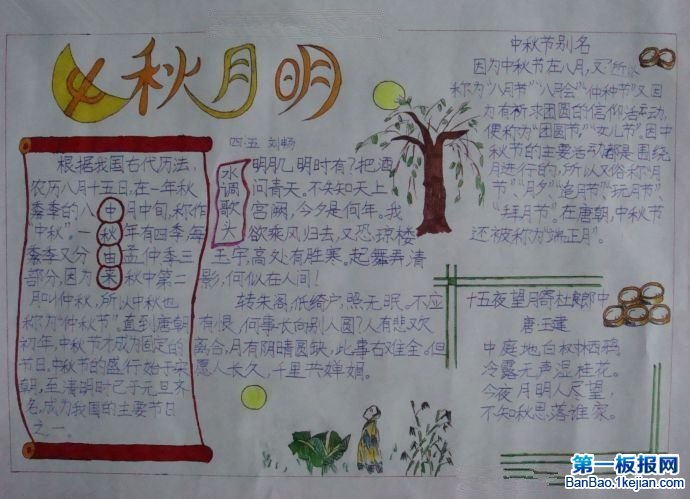 中秋月明
四.五 刘畅
根据我国古代历法,
农历八月十五日,在一年秋
季季的八月中旬,称作
“中秋”。一年有四季,每
季季又分孟仲季三
部分,因为秋中第二
月叫仲秋,所以中秋也
称为“仲秋节”。直到唐朝
初年,中秋节才成为固定的
节日。中秋节的盛行始于宋
朝,至清明时已于元旦齐
名,成为我国的主要节日
之一.
中秋由来
水调歌头
明几明时有?把酒
问青天。不知知天上
宫阙,今夕是何年。我
欲乘风归去,又恐琼楼
玉宇,高处有胜寒。起舞弄清
影,何似在人间!
转朱阁,低绮户,照无眠。不应
有恨,何事长向别人圆?人有悲欢
离合,月有阴晴圆缺,此事右难全。但
愿人长久,千里共婵娟。
中秋节别名
因为中秋节在八月,又所以
称为“八月节”“八月会”“仲种节”又因
为有祈求团圆的信仰活动,
便称为“团圆节”“女儿节”。因中
秋节的主要活动都是围绕
月进行的,所以又俗称“月
节”“月夕”“追月节”“玩月节”、
“拜月节”。在唐朝,中秋节
还被称为“端正月”。
十五夜望月寄杜郎中
唐.王建
中庭地白树栖鸦,
冷露无声湿桂花。
今夜月明人尽望,
不知秋思落谁家。
第一板报网
BanBao.1kejian.com